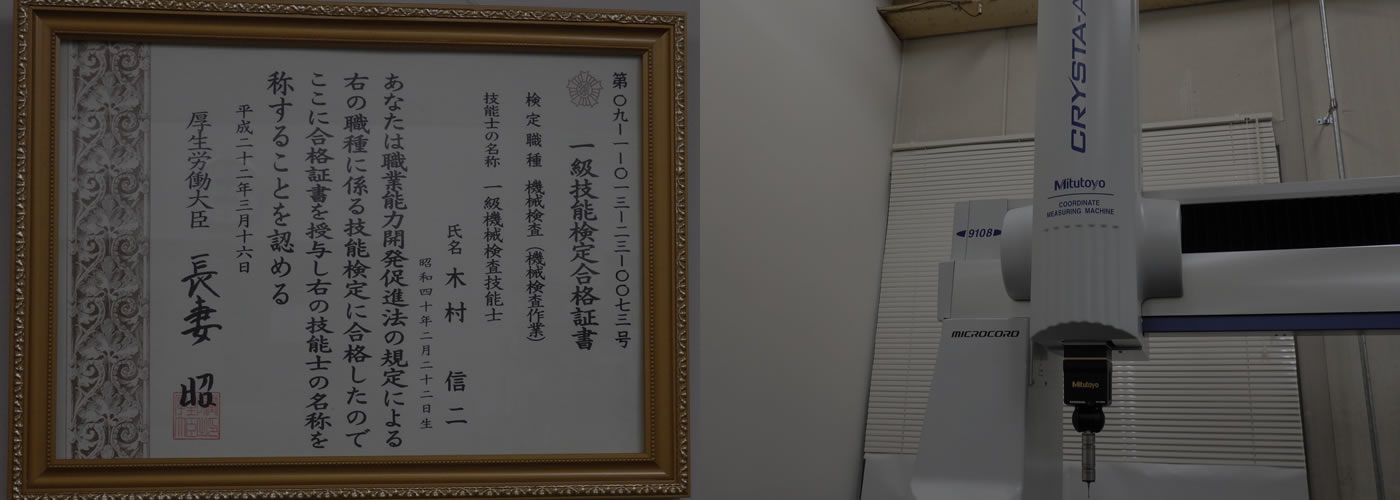 第〇九ー一ー〇一三ー二三ー〇〇七三号
一級技能検定合格証書
検定職種 機械検査（機械検査作業）
技能士の名称 一級機械検査技能士
氏名 木村 信二
昭和四十年二月二十二日生
あなたは職業能力開発促進法の規定による
右の職種に係る技能検定に合格したので
ここに合格証書を授与し右の技能士の名称を
称することを認める
平成二十二年三月十六日
厚生労働大臣 長妻 昭
CRYSTA-A
Mitutoyo
COORDINATE
MEASURING MACHINE
9108
MICROCORD
Mitutoyo